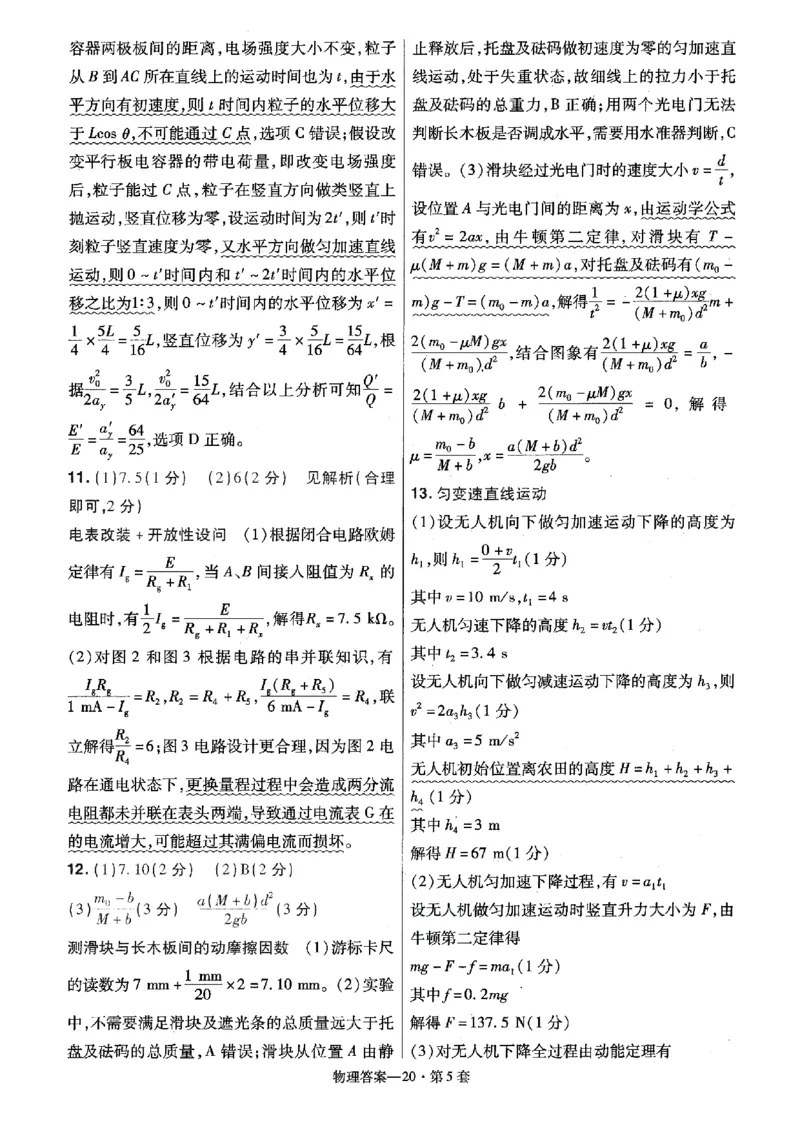 容器两极板间的距离,电场强度大小不变,粒子
从 B 到 AC 所在直线上的运动时间也为 t,由于水
平方向有初速度,则 t 时间内粒子的水平位移大
于 Lcos θ,不可能通过 C 点,选项 C 错误;假设改
变平行板电容器的带电荷量,即改变电场强度
后,粒子能过 C 点,粒子在竖直方向做类竖直上
抛运动,竖直位移为零,设运动时间为 2t′,则 t′时
刻粒子竖直速度为零,又水平方向做匀加速直线
运动,则 0 ~ t′时间内和 t′ ~ 2t′时间内的水平位
移之比为1:3,则 0 ~ t′时间内的水平位移为 x′ =
1/4 × 5L/4 = 5/16 L,竖直位移为 y′ = 3/4 × 5/16 L = 15/64 L,根
据 v₀²/2a_y = 3/5 L, v₀²/2a′_y = 15/64 L,结合以上分析可知 Q′/Q =
E′/E = a′_y/a_y = 64/25,选项 D 正确。
11. (1)7.5(1 分) (2)6(2 分) 见解析(合理
即可,2 分)
电表改装 + 开放性设问 (1)根据闭合电路欧姆
定律有 I_g = E/(R_g + R₁),当 A、B 间接入阻值为 R_x 的
电阻时,有 1/2 I_g = E/(R_g + R₁ + R_x),解得R_x = 7.5 kΩ。
(2)对图 2 和图 3 根据电路的串并联知识,有
I_gR_g/(1 mA − I_g) = R₂,R₂ = R₄ + R₅, I_g(R_g + R₅)/(6 mA − I_g) = R₄,联
立解得 R₂/R₄ = 6;图 3 电路设计更合理,因为图 2 电
路在通电状态下,更换量程过程中会造成两分流
电阻都未并联在表头两端,导致通过电流表 G 在
的电流增大,可能超过其满偏电流而损坏。
12. (1)7.10(2 分) (2)B(2 分)
(3) (m₀ − b)/(M + b) (3 分) a(M + b)d²/2gb (3 分)
测滑块与长木板间的动摩擦因数 (1)游标卡尺
的读数为 7 mm + 1 mm/20 × 2 = 7.10 mm。(2)实验
中,不需要满足滑块及遮光条的总质量远大于托
盘及砝码的总质量,A 错误;滑块从位置 A 由静
止释放后,托盘及砝码做初速度为零的匀加速直
线运动,处于失重状态,故细线上的拉力小于托
盘及砝码的总重力,B 正确;用两个光电门无法
判断长木板是否调成水平,需要用水准器判断,C
错误。(3)滑块经过光电门时的速度大小 v = d/t,
设位置 A 与光电门间的距离为 x,由运动学公式
有v² = 2ax,由牛顿第二定律,对滑块有 T −
μ(M + m)g = (M + m)a,对托盘及砝码有(m₀ −
m)g − T = (m₀ − m)a,解得 1/t² = − 2(1 + μ)xg/(M + m₀)d² m +
2(m₀ − μM)gx/(M + m₀)d²,结合图象有 2(1 + μ)xg/(M + m₀)d² = a/b, −
2(1 + μ)xg/(M + m₀)d² b + 2(m₀ − μM)gx/(M + m₀)d² = 0, 解得
μ = (m₀ − b)/(M + b),x = a(M + b)d²/2gb。
13. 匀变速直线运动
(1)设无人机向下做匀加速运动下降的高度为
h₁,则 h₁ = (0 + v)/2 t₁(1 分)
其中 v = 10 m/s,t₁ = 4 s
无人机匀速下降的高度 h₂ = vt₂(1 分)
其中 t₂ = 3.4 s
设无人机向下做匀减速运动下降的高度为 h₃,则
v² = 2a₃h₃(1 分)
其中 a₃ = 5 m/s²
无人机初始位置离农田的高度 H = h₁ + h₂ + h₃ +
h₄ (1 分)
其中 h₄ = 3 m
解得 H = 67 m(1 分)
(2)无人机匀加速下降过程,有 v = a₁t₁
设无人机做匀加速运动时竖直升力大小为 F,由
牛顿第二定律得
mg − F − f = ma₁(1 分)
其中 f = 0.2mg
解得 F = 137.5 N(1 分)
(3)对无人机下降全过程由动能定理有
物理答案—20 · 第 5 套